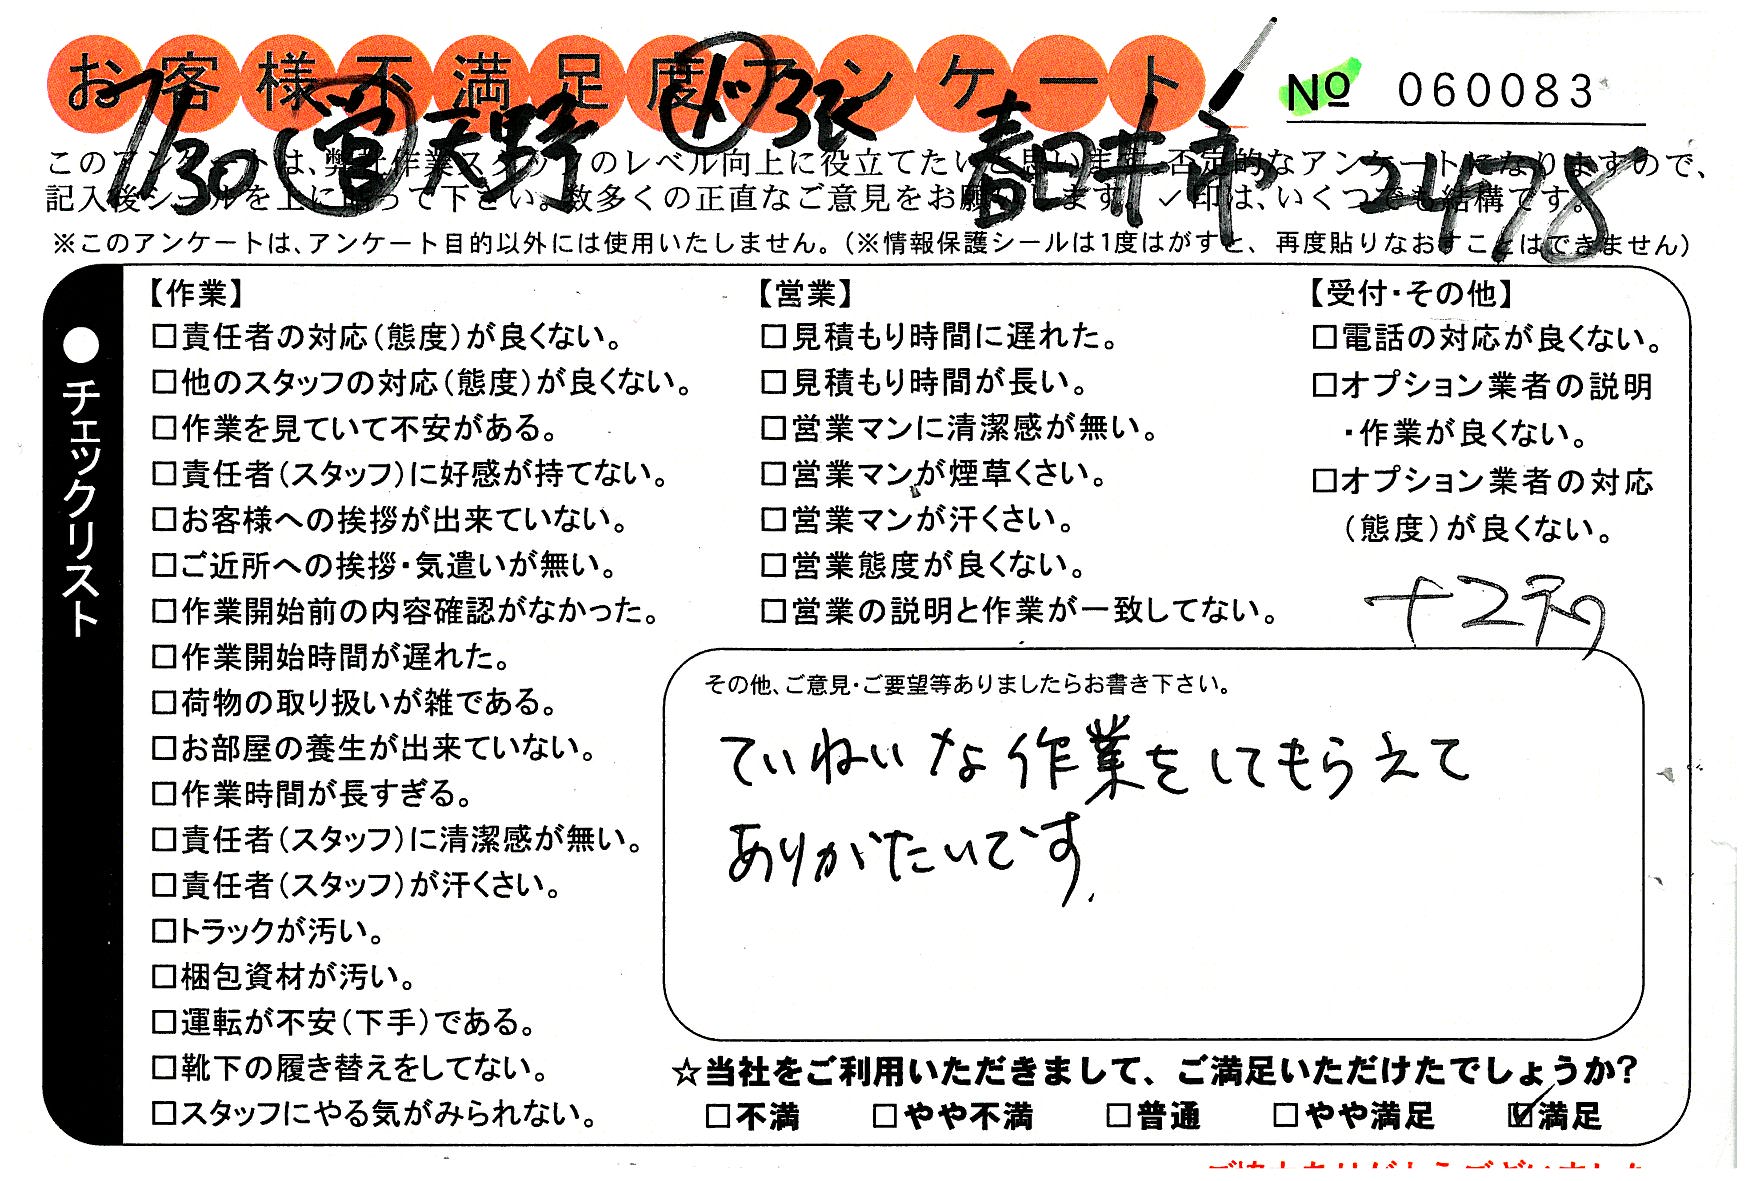 お客様不満足度アンケート
No 060083
1/30 営 天野 ド 春日井市 2478
このアンケートは、弊社作業スタッフのレベル向上に役立てたいと思います。否定的なアンケートになりますので、
記入後シールを上に貼って下さい。数多くの正直なご意見をお願いします。✓印は、いくつでも結構です。
※このアンケートは、アンケート目的以外には使用いたしません。(※情報保護シールは1度はがすと、再度貼りなおすことはできません)
●チェックリスト
【作業】
□責任者の対応(態度)が良くない。
□他のスタッフの対応(態度)が良くない。
□作業を見ていて不安がある。
□責任者(スタッフ)に好感が持てない。
□お客様への挨拶が出来ていない。
□ご近所への挨拶・気遣いが無い。
□作業開始前の内容確認がなかった。
□作業開始時間が遅れた。
□荷物の取り扱いが雑である。
□お部屋の養生が出来ていない。
□作業時間が長すぎる。
□責任者(スタッフ)に清潔感が無い。
□責任者(スタッフ)が汗くさい。
□トラックが汚い。
□梱包資材が汚い。
□運転が不安(下手)である。
□靴下の履き替えをしてない。
□スタッフにやる気がみられない。
【営業】
□見積もり時間に遅れた。
□見積もり時間が長い。
□営業マンに清潔感が無い。
□営業マンが煙草くさい。
□営業マンが汗くさい。
□営業態度が良くない。
□営業の説明と作業が一致してない。
【受付・その他】
□電話の対応が良くない。
□オプション業者の説明
・作業が良くない。
□オプション業者の対応
(態度)が良くない。
その他、ご意見・ご要望等ありましたらお書き下さい。
ていねいな作業をしてもらえて
ありがたいです。
☆当社をご利用いただきまして、ご満足いただけたでしょうか?
□不満 □やや不満 □普通 □やや満足 ☑満足